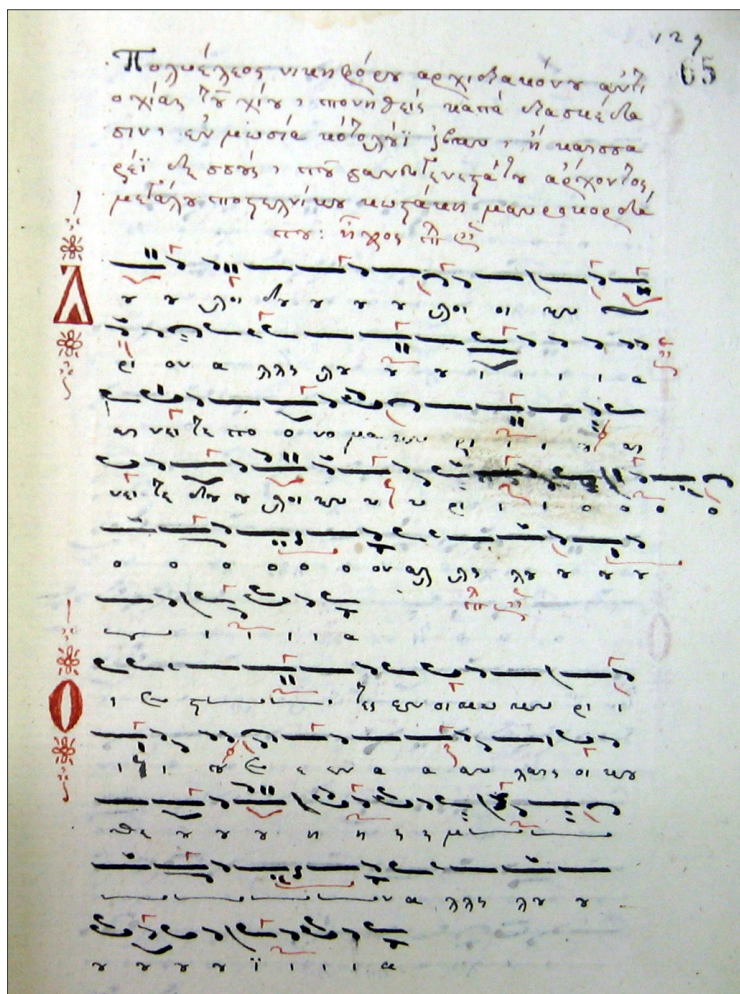 129
65
Πολυέλεος νικηφόρου αρχιδιακόνου αντι
οχίας του χίου, πονηθείς κατά διασκέδα
σιν, εν μωσία
του πανευγενεστάτου άρχοντος,
μεγάλου ποστελνίκου κωστάκη μαυροκορδά
του: ήχος πλ δ
Δ ου ου λοι δου ου ου ου λοι οι κυ
ρι ον α λλη λου ου ου ι ι ι ι α
αι νει τε το ο νο μα κυ ρι ι ι ου αι
νει τε δου ου λοι κυ υ υ ρι ι ι ο ο ο ο
ο ο ο ο ο ο ον αλ λη λου ου ου ου
ου ι ι ι ι α
Ο ι ε τες εν οι κω κυ ρι ι
ι ι ι ου ε ε εν α α αυ λαις οι κου
θε ου ου ου η η η η μ
ων α λλη λου ου
ου ου ου ου ϊ ι ι ι α